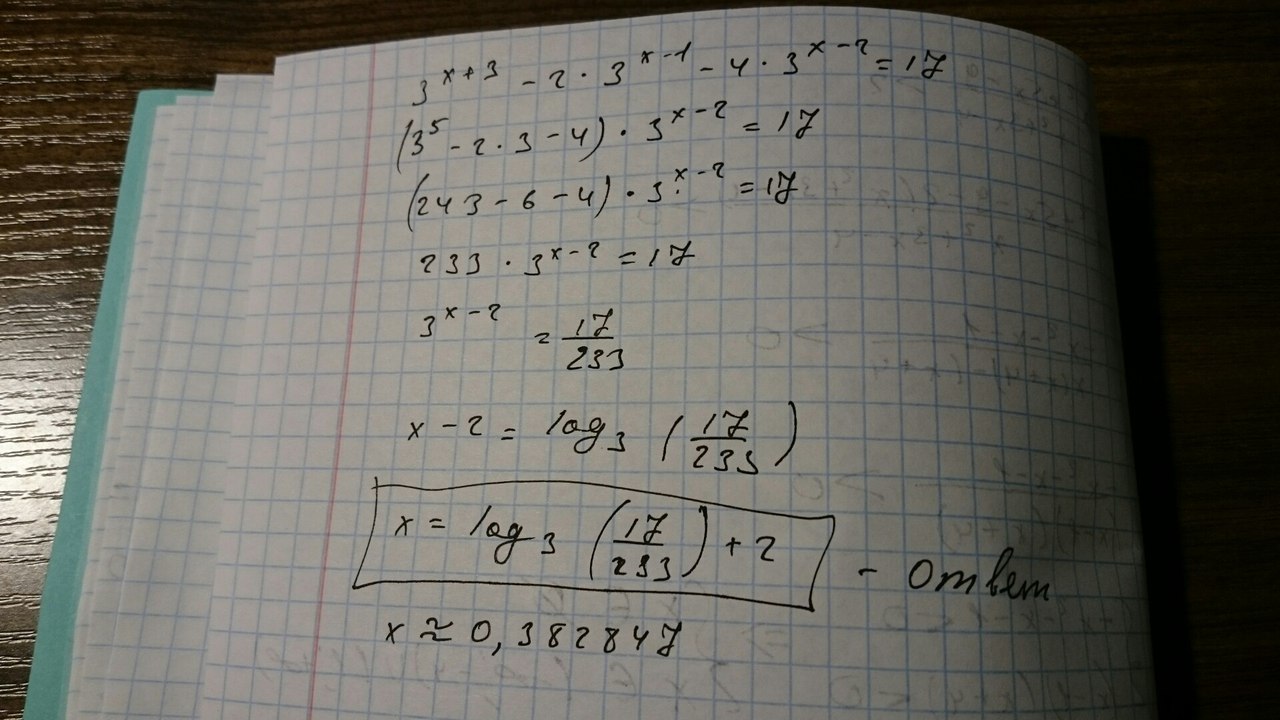 3^{x+3} - 2 · 3^{x-1} - 4 · 3^{x-2} = 17
(3^5 - 2 · 3 - 4) · 3^{x-2} = 17
(243 - 6 - 4) · 3^{x-2} = 17
233 · 3^{x-2} = 17
3^{x-2} = 17/233
x - 2 = log_3 (17/233)
x = log_3 (17/233) + 2 - Ответ
x ≈ 0,382847